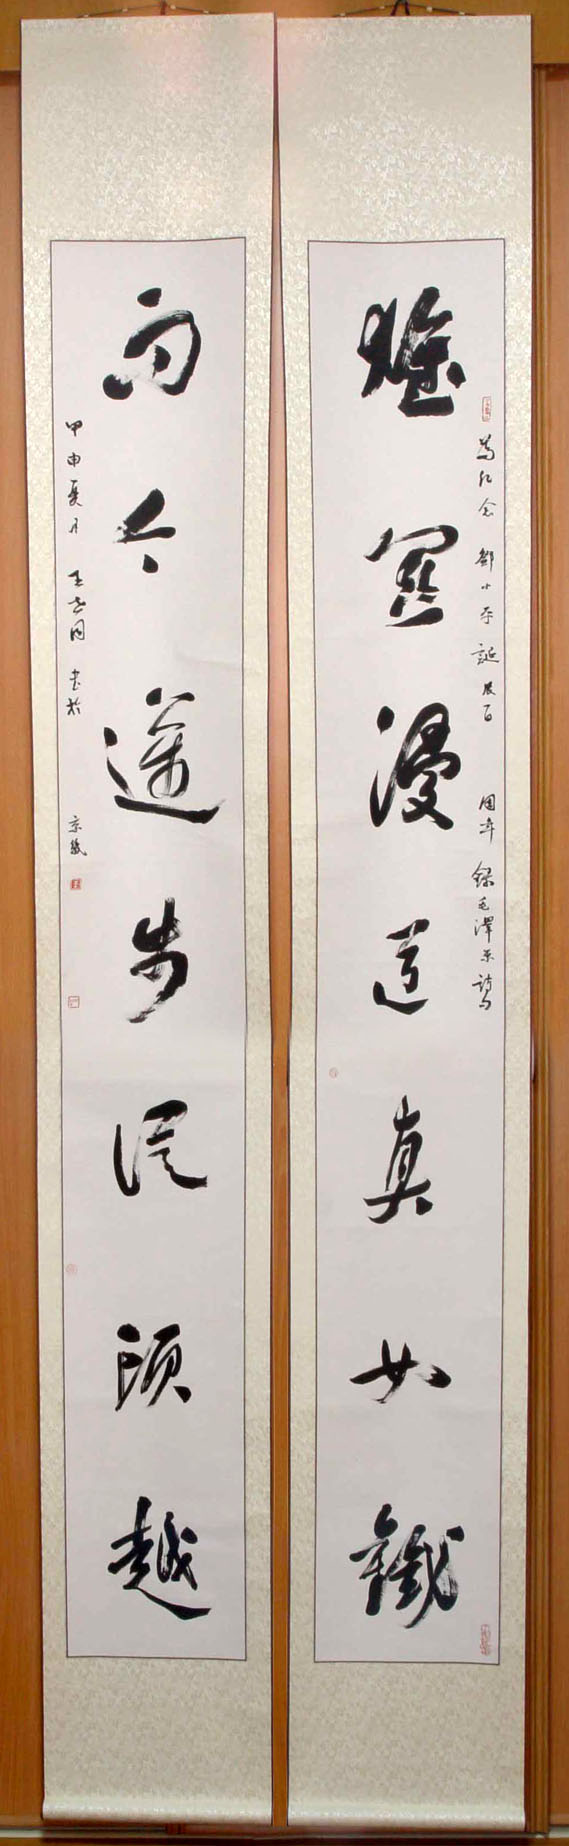 為紀念鄧小平誕辰百周年錄毛澤東詩句
雄關漫道真如鐵
而今邁步從頭越
甲申夏月王同書於京